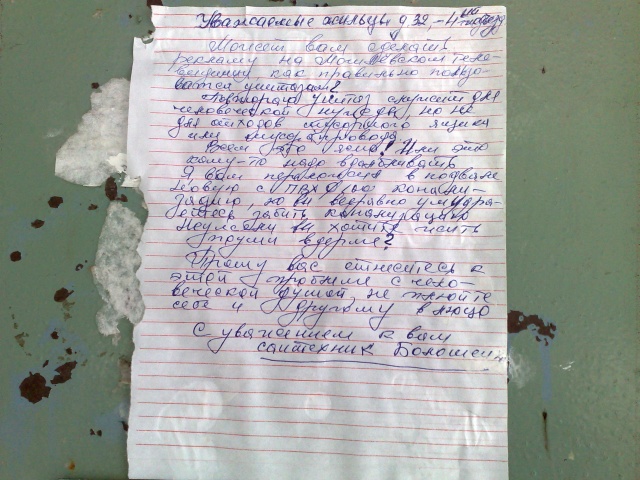 Уважаемые жильцы д 32, - 4 ый подъезд
Может вам сделать
рекламу на Могилёвском теле-
видении, как правильно пользо-
ваться унитазом?
Повторяю унитаз служит для
человеческой нужды, но не
для отходов мусорного ящика
или мусоропровода.
Всем это ясно? Или это
кому-то надо вдалбливать
Я вам переложил в подвале
новую с ПВХ канали-
зацию, но вы всеравно умудря-
етесь забить канализацию
Неужели вы хотите жить
по уши в дерьме?
Прошу вас отнеситесь к
этой проблеме с чело-
веческой душой, не плюйте
себе и другому в лицо
С уважением к вам
сантехник